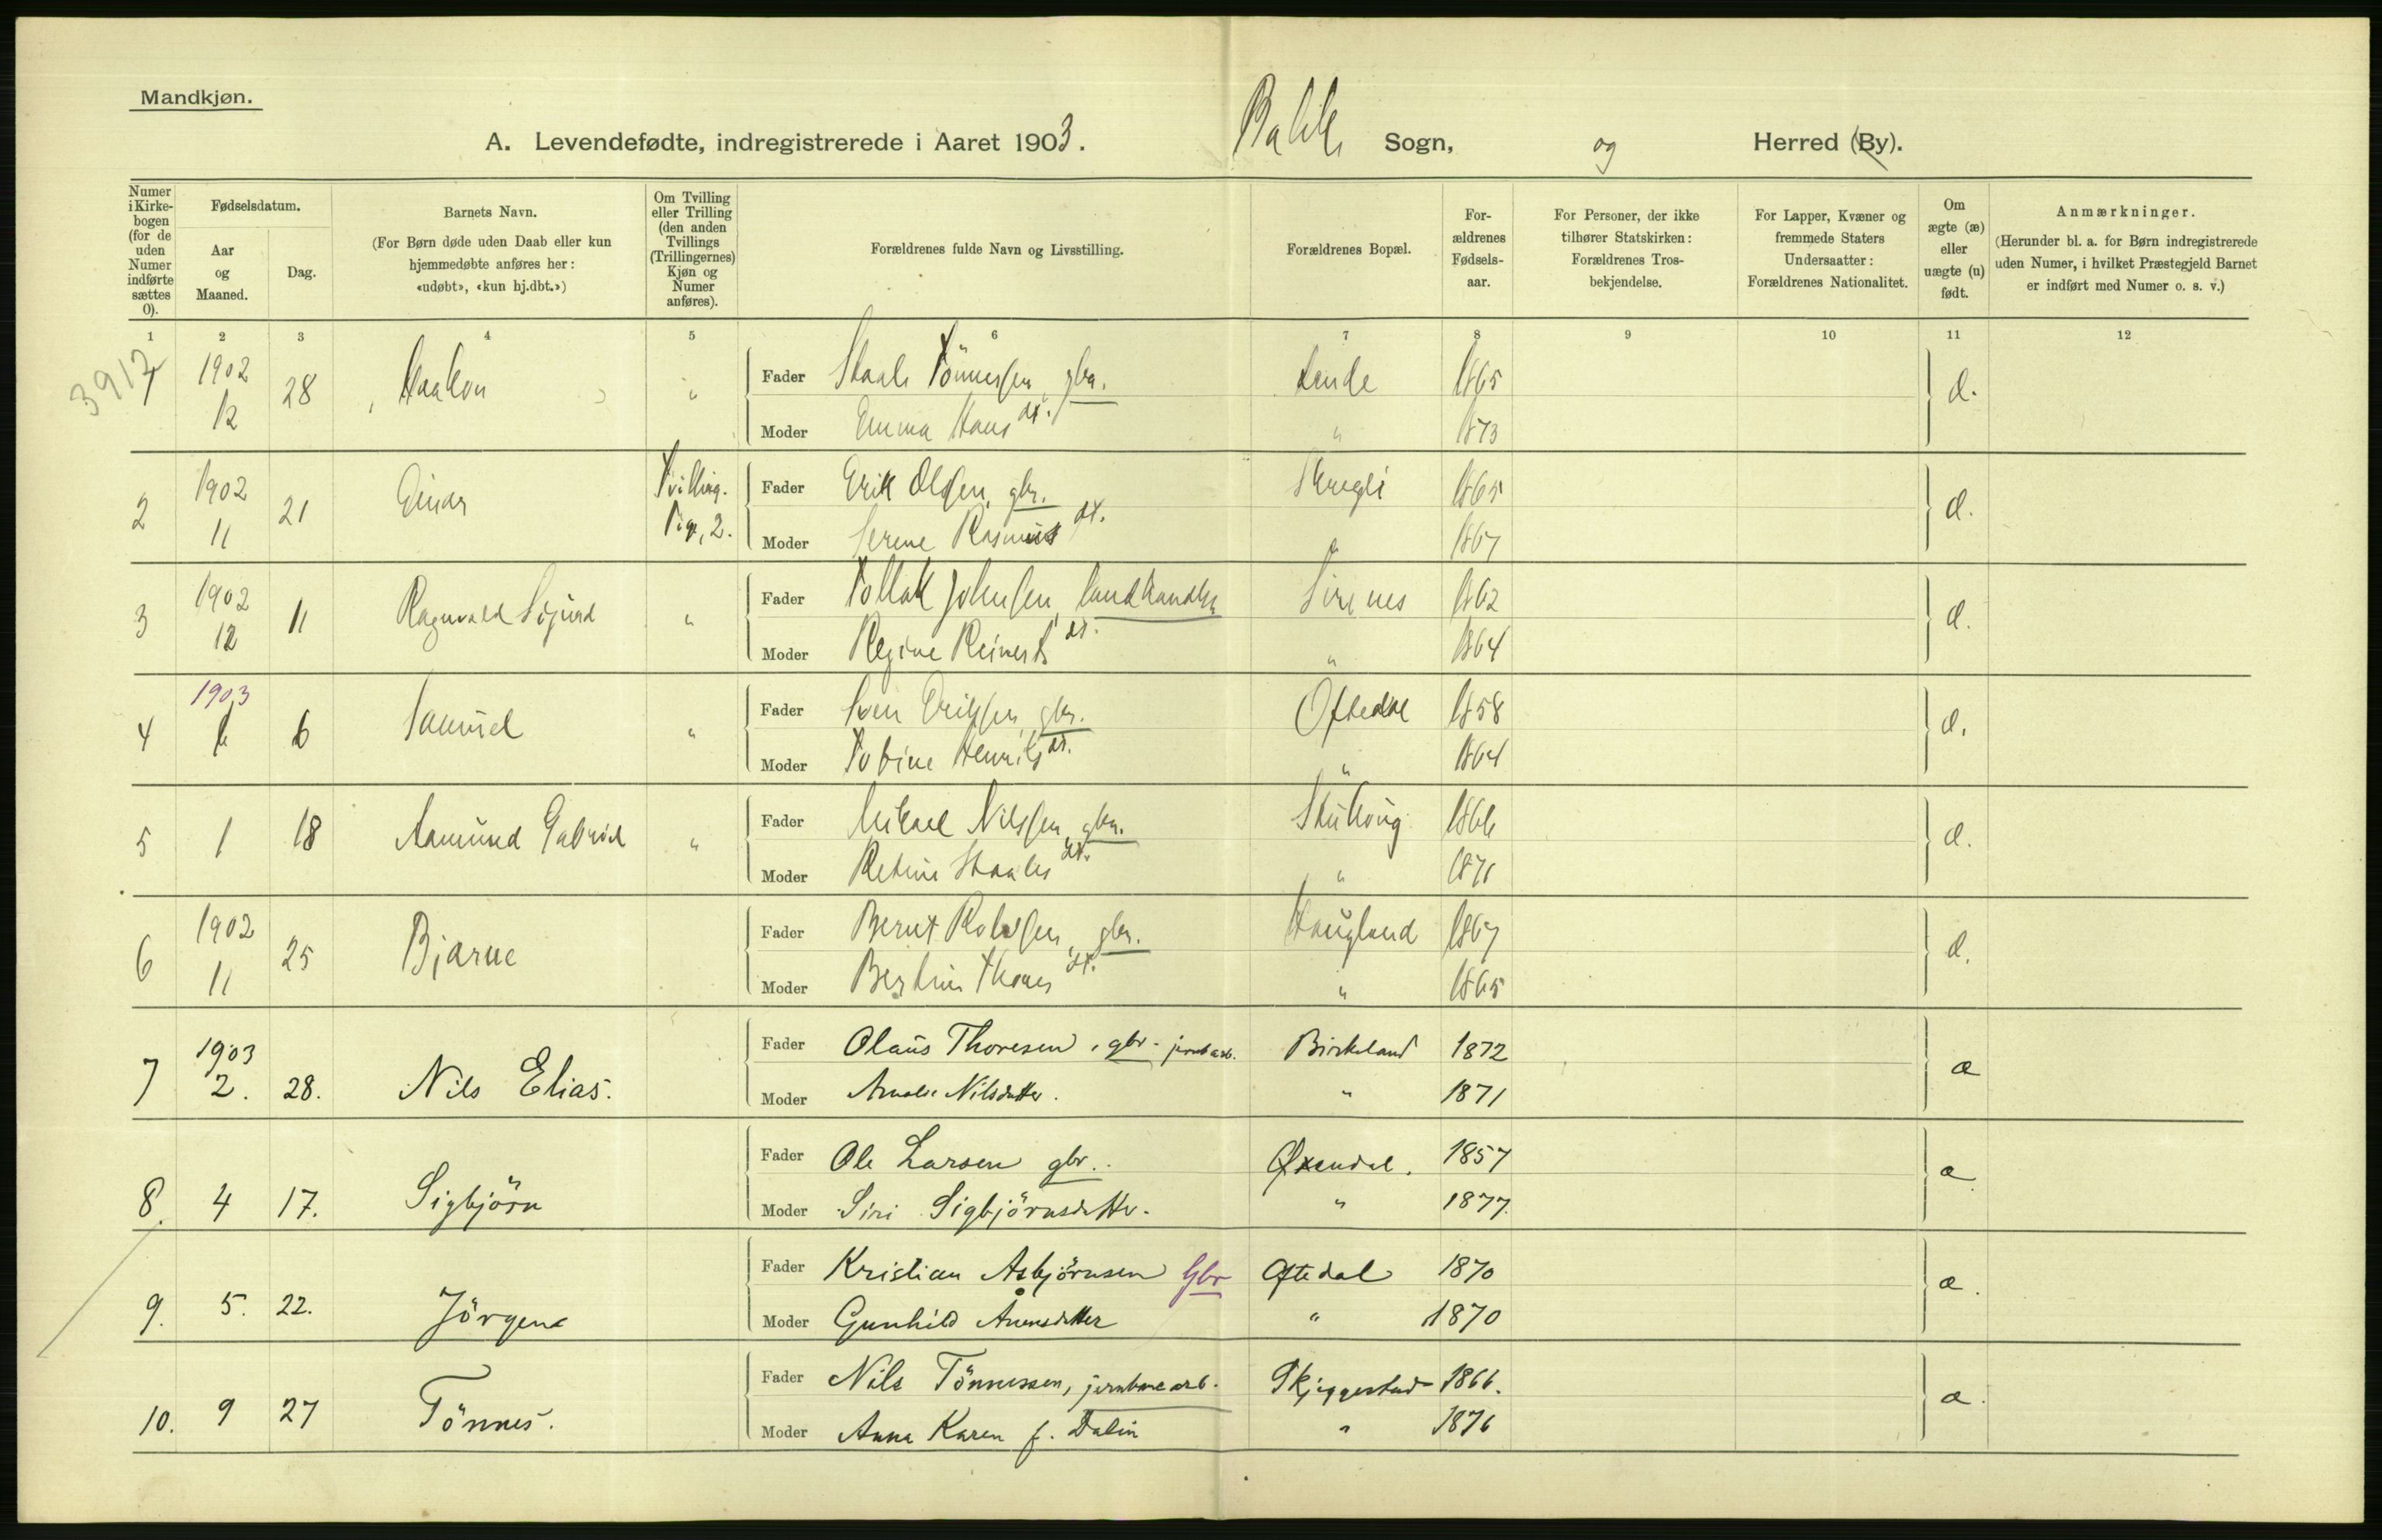 Mandkjøn.
A. Levendefødte, indregistrerede i Aaret 1903. Bakke Sogn, og Herred (By).
Numer i Kirkebogen (for de uden Numer indførte sættes 0).
Fødselsdatum.
Aar og Maaned.
Dag.
Barnets Navn.
(For Børn døde uden Daab eller kun hjemmedøbte anføres her: «udøbt», «kun hj.dbt.»)
Om Tvilling eller Trilling (den anden Tvillings (Trillingernes) Kjøn og Numer anføres).
Forældrenes fulde Navn og Livsstilling.
Forældrenes Bopæl.
Forældrenes Fødselsaar.
For Personer, der ikke tilhører Statskirken: Forældrenes Trosbekjendelse.
For Lapper, Kvæner og fremmede Staters Undersaatter: Forældrenes Nationalitet.
Om ægte (æ) eller uægte (u) født.
Anmærkninger.
(Herunder bl. a. for Børn indregistrerede uden Numer, i hvilket Præstegjeld Barnet er indført med Numer o. s. v.)
1 2 3 4 5 6 7 8 9 10 11 12
3917
1 1902 12 28 Haakon " Fader Staale Tönnessen, gbr. Lande 1865 æ.
Moder Emma Hans dt. " 1873
2 1902 11 21 Einar Tvilling. Pige, 2. Fader Erik Olsen, gbr. 1865 æ.
Moder Serene Rasmus dt. " 1867
3 1902 12 11 Ragnvald Sigurd " Fader Tollak Johnsen, landhandler Sirenes 1862 æ.
Moder Regine Reinerts dt. " 1864
4 1903 1 6 Samuel " Fader Sven Eriksen, gbr. Oftedal 1858 æ.
Moder Tobine Henriks dt. " 1864
5 1 18 Aamund Gabriel " Fader Mikael Nilssen, gbr. 1866 æ.
Moder Staales dt. " 1871
6 1902 11 25 Bjarne Fader Bernt gbr. Haugland 1867 æ.
Moder dt. " 1865
7 1903 2. 28. Nils Elias. Fader Olaus Thoresen, gbr. jernb arb. Birkeland 1872 æ
Moder Amalie Nilsdatter. " 1871
8. 4 17. Sigbjörn Fader Ole Larsen gbr. Øxendal. 1857 æ
Moder Siri Sigbjörnsdatter. " 1877.
9. 5. 22. Jörgen Fader Kristian Asbjörnsen Gbr Oftedal 1870 æ.
Moder Gunhild Ånensdatter " 1870
10. 9 27 Tönnes. Fader Nils Tönnessen, jernbanearb. Skjeggestad 1866. æ.
Moder Anna Karen f. Dalin " 1876